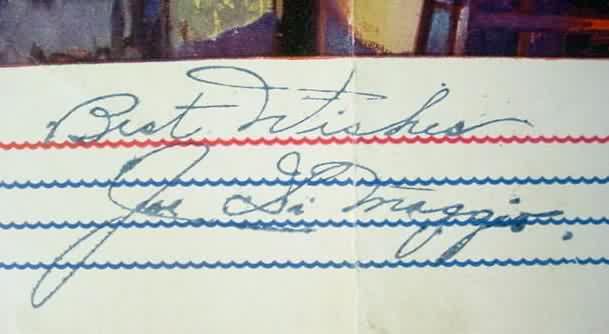 Best Wishes
Joe Di Maggio.